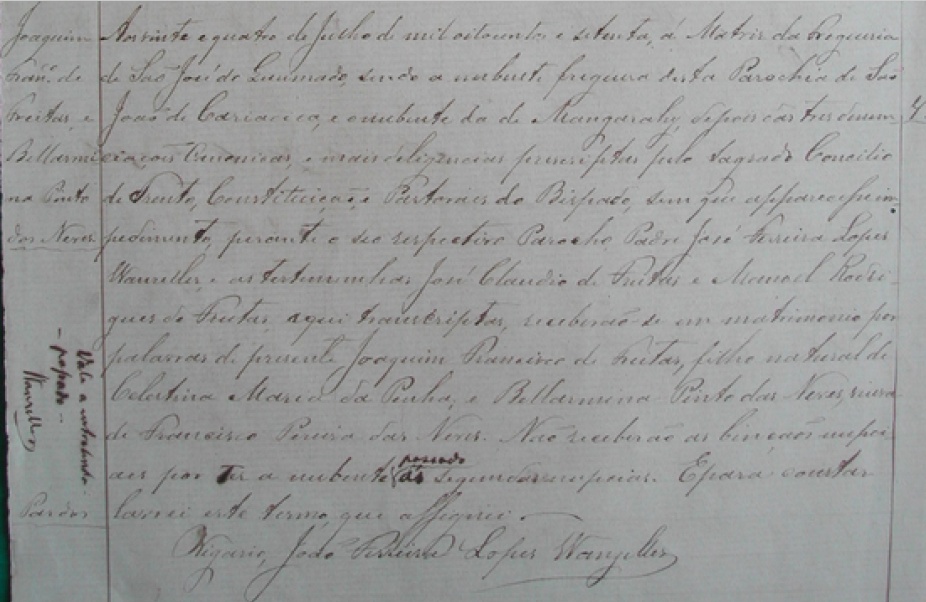 Joaquim
Fran.co de
Freitas, e
Bellarmi
na Pinto
das Neves
Pardos
Vale a entrelinha -
- passado -
Wanzeller
Aos vinte e quatro de Julho de mil oitocentos e setenta, á Matriz da Freguesia
de São José do Queimado, sendo a nubente fregueza desta Parochia de São
João de Cariacica, e o nubente da de Mangarahy, depois das tres denun
ciaçoes Canonicas, e mais diligencias prescriptas pelo Sagrado Concilio
de Trento, Constituição, e Pastoraes do Bispado, sem que apparecesse im
pedimento, perante o seo respectivo Parocho, Padre José Ferreira Lopes
Wanzeller, e as testemunhas José Claudio de Freitas e Manoel Rodri-
gues de Freitas, aqui transcriptas, receberão-se em matrimonio por
palavras de presente Joaquim Francisco de Freitas, filho natural de
Celestina Maria da Penha, e Bellarmina Pinto das Neves, viuva
de Francisco Pereira das Neves. Não receberão as bençãos nupci
aes por ter a nubente passado ás segundas nupcias. E para constar
lavrei este termo, que assignei.
Vigario, João Ferreira Lopes Wanzeller